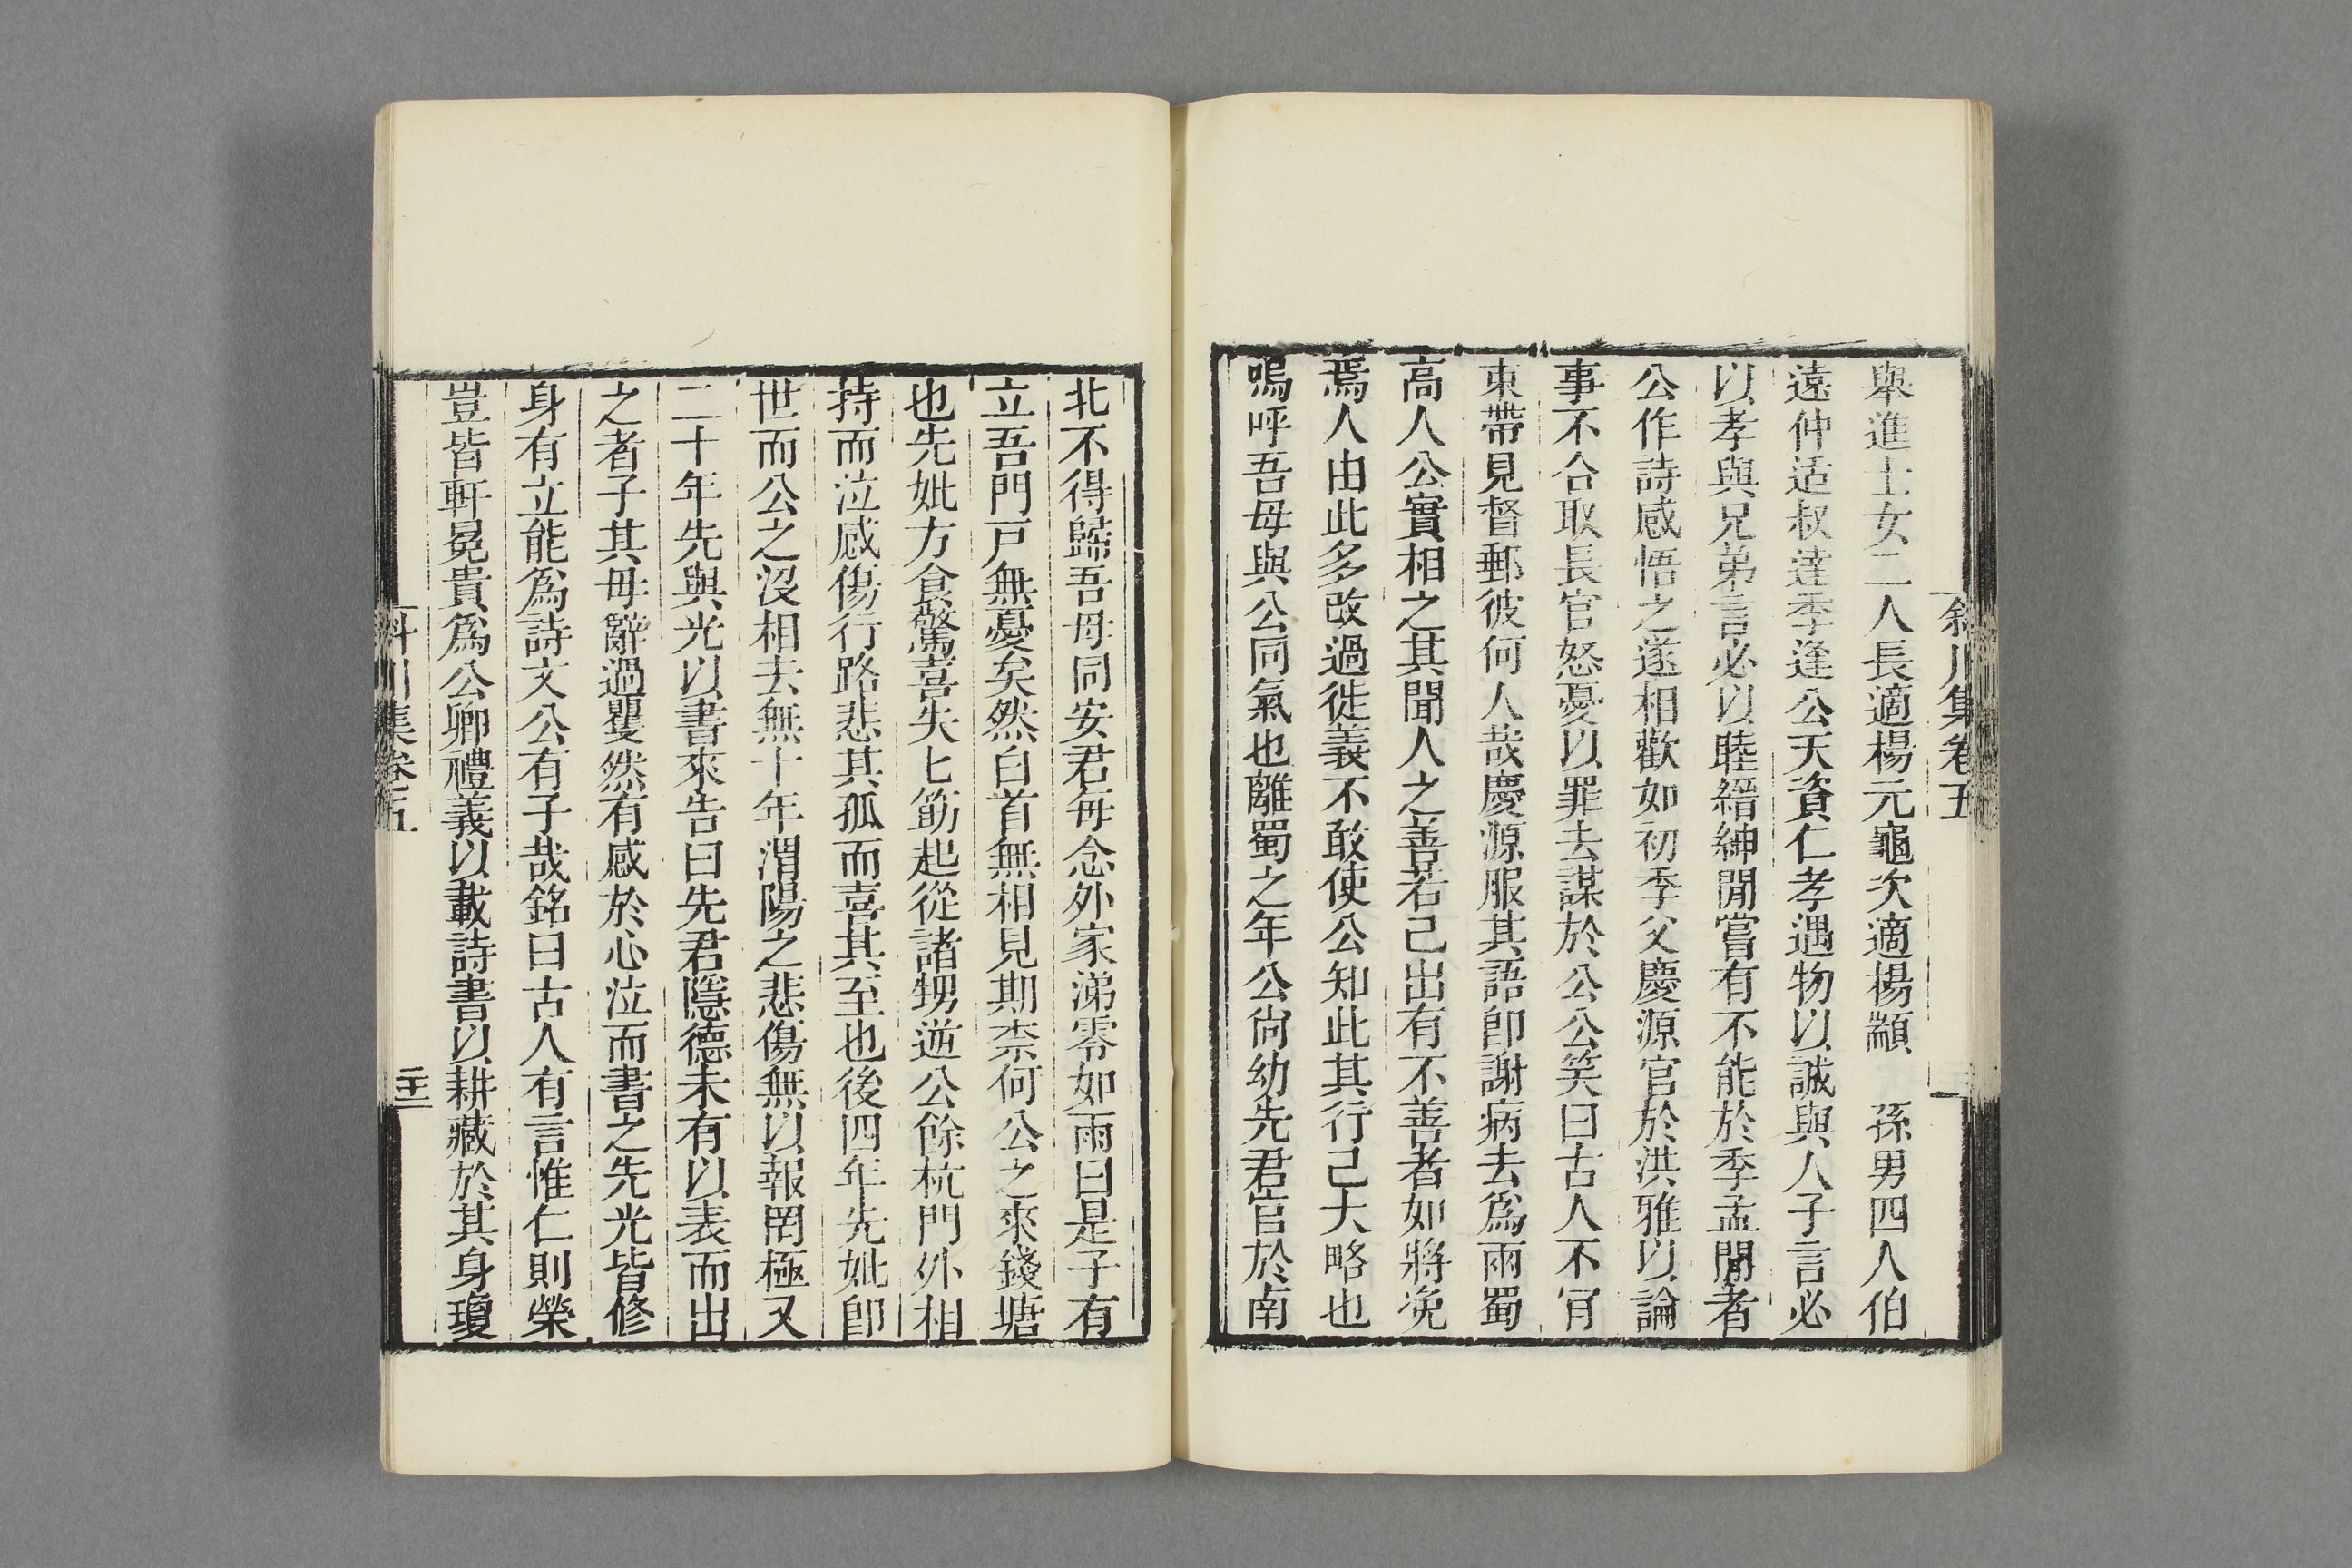 斜川集卷五
舉進士女二人長適楊元龜次適楊顓　孫男四人伯
遠仲适叔達季逢公天資仁孝遇物以誠與人子言必
以孝與兄弟言必以睦縉紳閒嘗有不能於季孟閒者
公作詩感悟之遂相歡如初季父慶源官於洪雅以論
事不合取長官怒憂以罪去謀於公公笑曰古人不肯
束帶見督郵彼何人哉慶源服其語卽謝病去爲雨蜀
高人公實相之其聞人之善若己出有不善者如將凂
焉人由此多改過徙義不敢使公知此其行己大略也
嗚呼吾母與公同氣也離蜀之年公尙幼先君官於南
北不得歸吾母同安君每念外家涕零如雨曰是子有
立吾門戸無憂矣然白首無相見期柰何公之來錢塘
也先妣方食驚喜失匕筯起從諸甥逆公餘杭門外相
持而泣感傷行路悲其孤而喜其至也後四年先妣卽
世而公之沒相去無十年渭陽之悲傷無以報罔極又
二十年先與光以書來告曰先君隱德未有以表而出
之者子其毋辭過矍然有感於心泣而書之先光皆修
身有立能爲詩文公有子哉銘曰古人有言惟仁則榮
豈皆軒冕貴爲公卿禮義以載詩書以耕藏於其身瓊
斜川集卷五